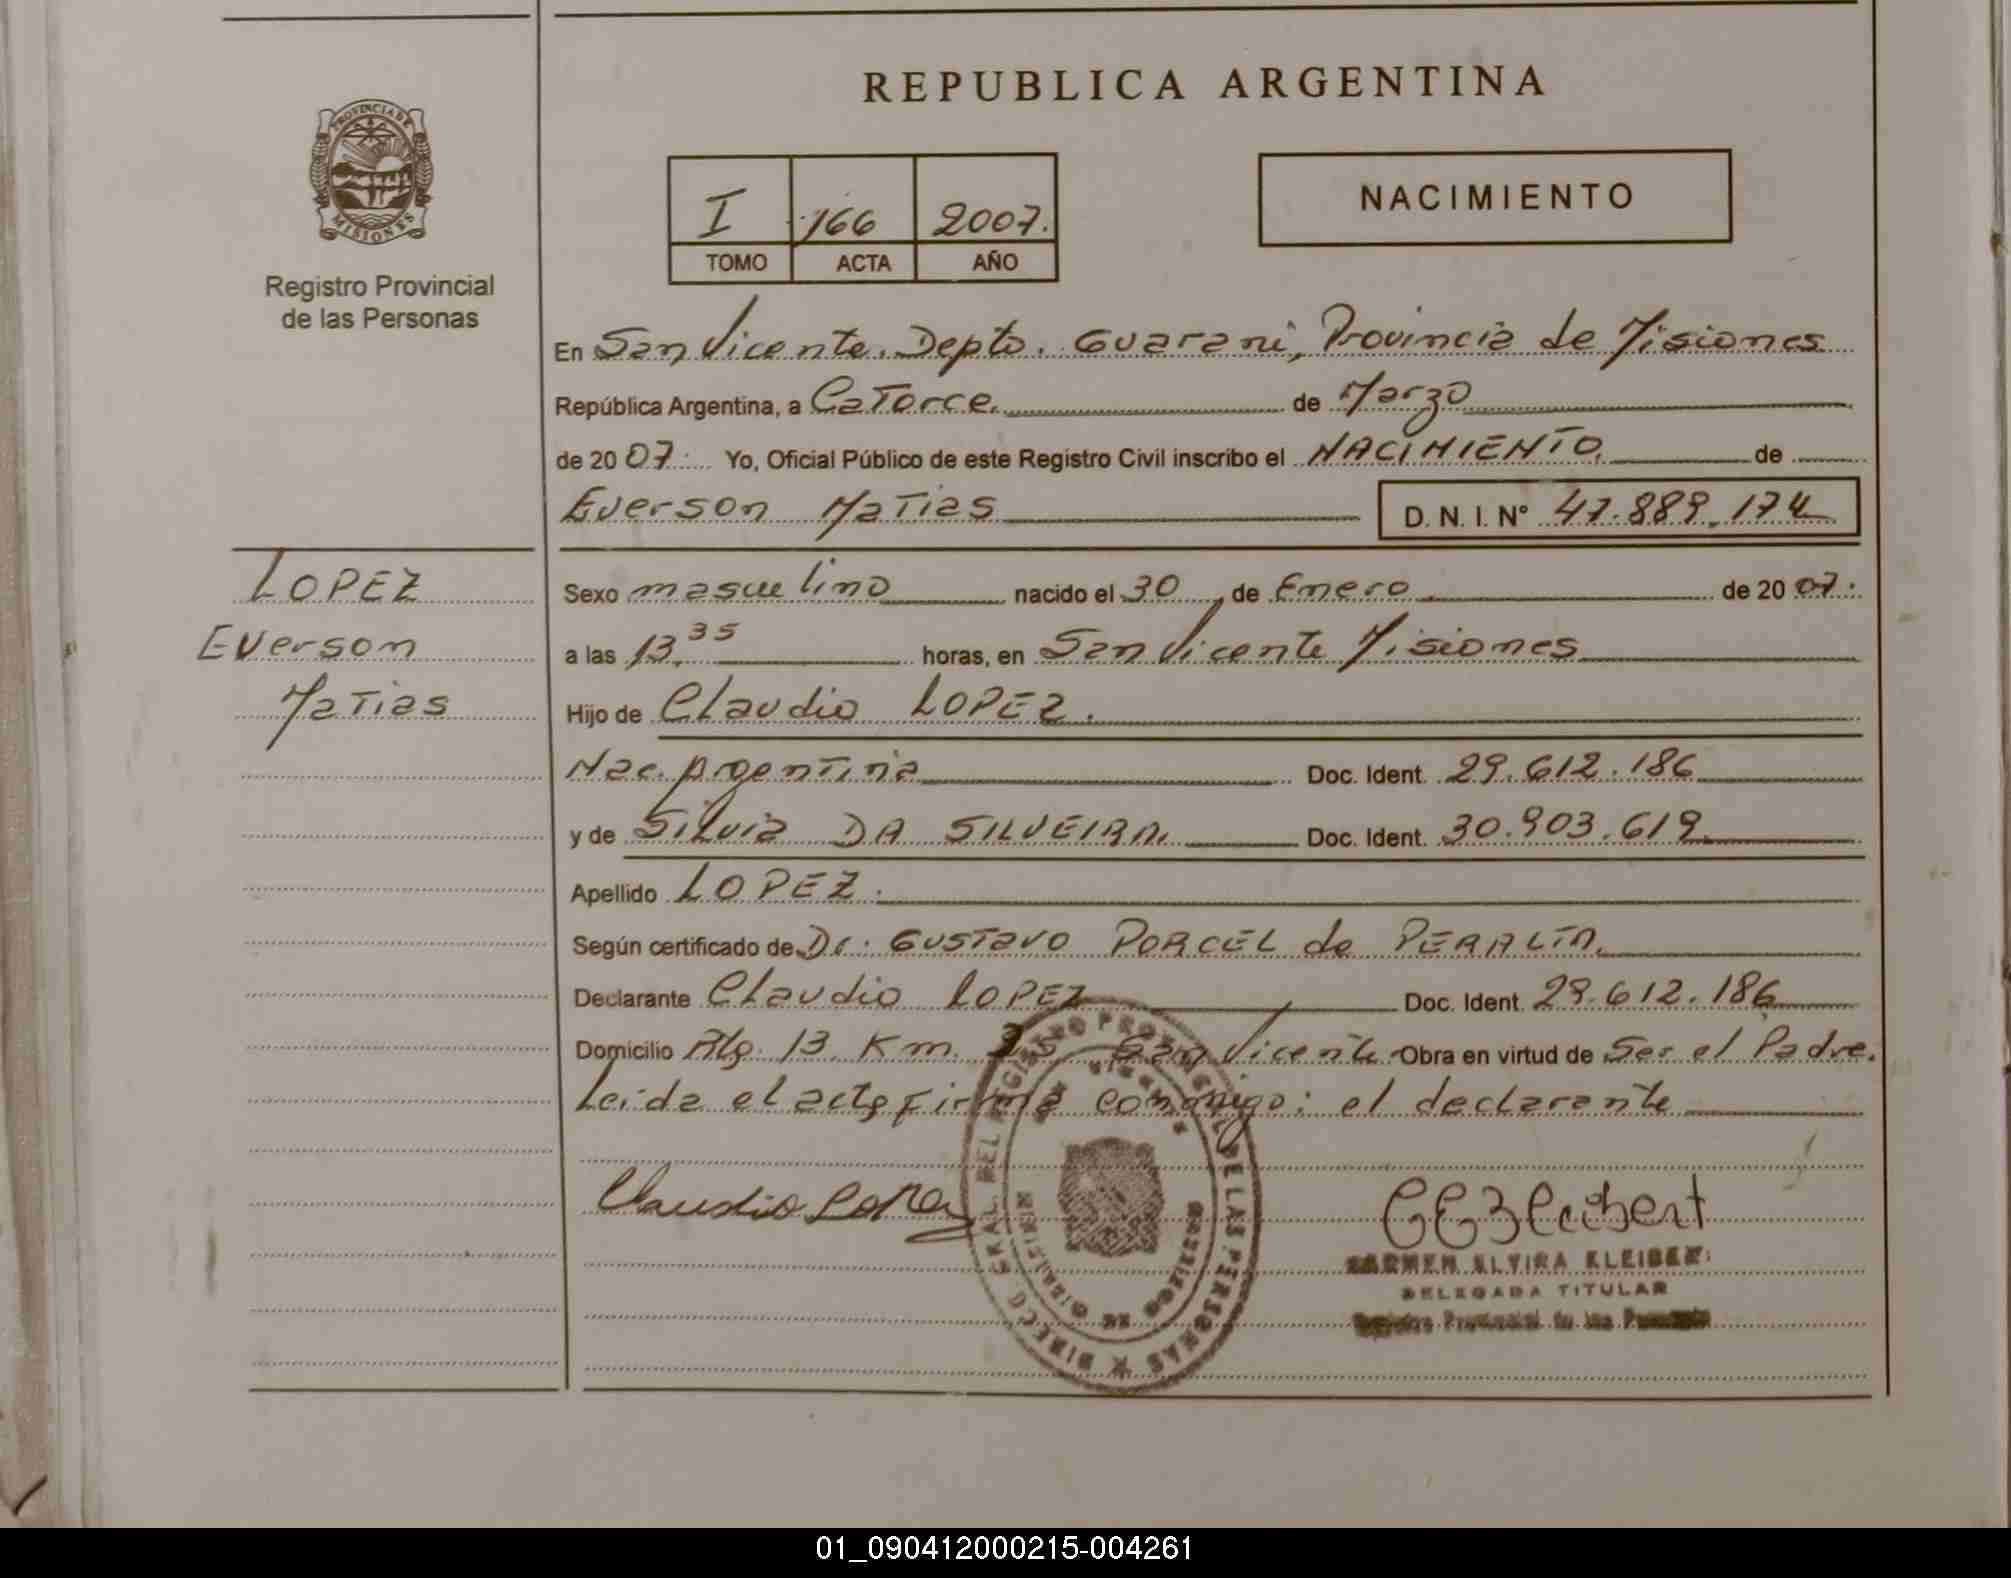 REPUBLICA ARGENTINA
PROVINCIA DE
MISIONES
Registro Provincial
de las Personas
I 166 2007.
TOMO ACTA AÑO
NACIMIENTO
En San Vicente. Depto. Guarani, Provincia de Misiones
República Argentina, a Catorce. de Marzo
de 2007. Yo, Oficial Público de este Registro Civil inscribo el NACIMIENTO. de
Everson Matias D. N. I. Nº 47.889.174
LOPEZ
Everson
Matias
Sexo masculino nacido el 30 de Enero de 2007.
a las 13.35 horas, en San Vicente Misiones
Hijo de Claudio LOPEZ.
Nac. Argentina Doc. Ident. 29.612.186
y de Silvia DA SILVEIRA. Doc. Ident. 30.903.619.
Apellido LOPEZ.
Según certificado de Dr. Gustavo PORCEL de PERALTA.
Declarante Claudio LOPEZ Doc. Ident. 29.612.186
Domicilio 13 Km. San Vicente Obra en virtud de Ser el Padre.
Leida el acta firma conmigo: el declarante
Claudio Lopez
DIRECC GRAL DEL REGISTRO PROVINCIAL DE LAS PERSONAS
MISIONES
CARMEN ELVIRA KLEIBER
DELEGADA TITULAR
Registro Provincial de las Personas
01_090412000215-004261